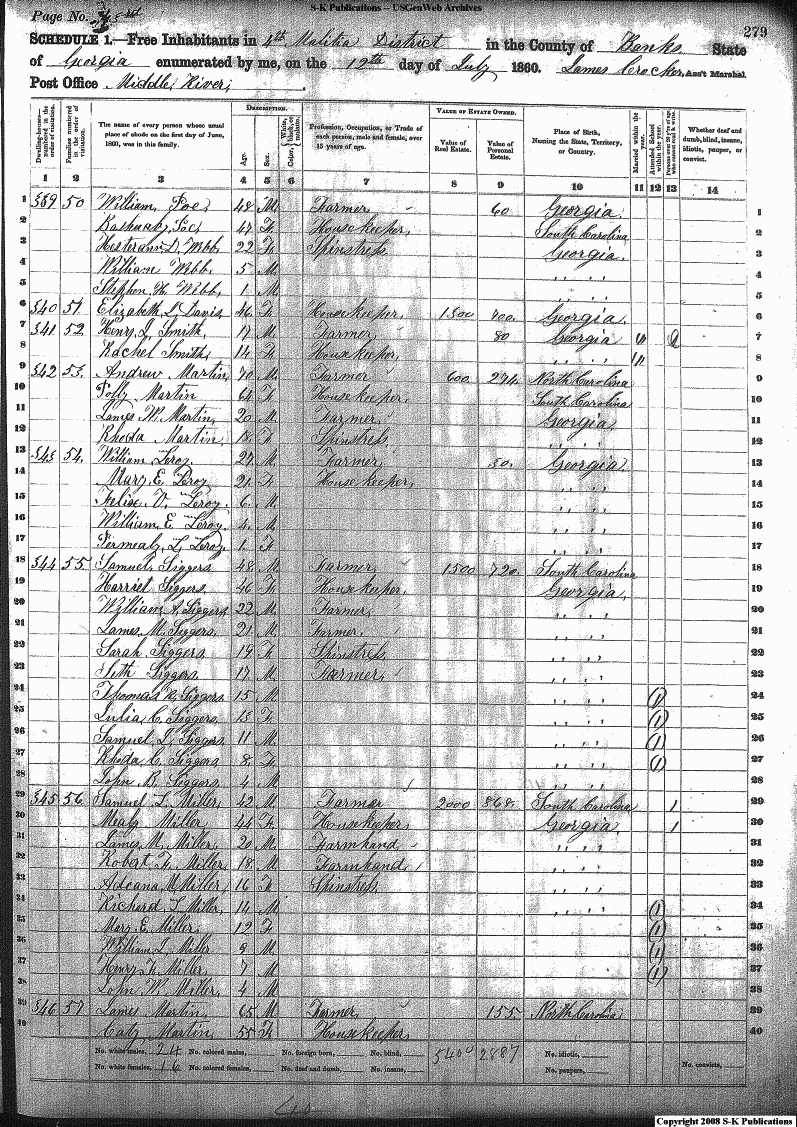 S-K Publications -- USGenWeb Archives
Page No. 279
SCHEDULE 1.—Free Inhabitants in 4th Malitia District in the County of Banks State
of Georgia enumerated by me, on the 12th day of July 1860. James Crocker, Ass't Marshal.
Post Office Middle River,
DESCRIPTION. VALUE OF ESTATE OWNED.
Dwelling-houses— numbered in the order of visitation. Families numbered in the order of visitation. The name of every person whose usual place of abode on the first day of June, 1860, was in this family. Age. Sex. Color, White, black, or mulatto. Profession, Occupation, or Trade of each person, male and female, over 15 years of age. Value of Real Estate. Value of Personal Estate. Place of Birth, Naming the State, Territory, or Country. Married within the year. Attended School within the year. Persons over 20 y'rs of age who cannot read & write. Whether deaf and dumb, blind, insane, idiotic, pauper, or convict.
1 2 3 4 5 6 7 8 9 10 11 12 13 14
1 50 William 48 M. Farmer 60 Georgia 1
2 47 F. Housekeeper, South Carolina 2
3 Webb 22 F. Spinstress Georgia 3
4 William Webb 5 M. " " 4
5 Stephen H. Webb, 1 M. 5
6 340 51 Elizabeth L. Davis 46 F. Housekeeper, 1500 Georgia 6
7 341 52 Henry J. Smith, 17 M. Farmer, 80 Georgia 7
8 Rachel Smith, 14 F. Housekeeper, " " 8
9 342 53 Andrew Martin, 70 M. Farmer 600 274 North Carolina 9
10 Polly Martin 64 F. Housekeeper, South Carolina 10
11 James W. Martin, 20 M. Farmer, Georgia 11
12 Rhoda Martin, 18 F. Spinstress " " 12
13 343 54 William Leroy, 27 M. Farmer, 50 Georgia 13
14 Mary E. Leroy 21 F. Housekeeper, " " 14
15 V. Leroy, 6 M. " " 15
16 William E. Leroy, 4 M. " " 16
17 L. Leroy, 1 F. " " 17
18 344 55 Samuel Siggers 48 M. Farmer, 1500 720 South Carolina 18
19 Harriet Siggers 46 F. Housekeeper, Georgia 19
20 William Siggers 22 M. Farmer, " " 20
21 James M. Siggers, 21 M. Farmer, " " 21
22 Sarah Siggers 19 F. Spinstress " " 22
23 Seth Siggers 17 M. Farmer, " " 23
24 Thomas Siggers 15 M. " " 1 24
25 Julia C. Siggers 13 F. " " 1 25
26 Samuel Siggers 11 M. " " 1 26
27 Rhoda C. Siggers 8 F. " " 1 27
28 John B. Siggers, 4 M. " " 28
29 345 56 Samuel T. Miller, 42 M. Farmer 2000 868 South Carolina 1 29
30 Mealy Miller 44 F. Housekeeper, Georgia 1 30
31 James M. Miller, 20 M. Farmhand " " 31
32 Robert F. Miller, 18 M. Farmhand " " 32
33 M. Miller, 16 F. Spinstress " " 33
34 Richerd T. Miller, 14 M. " " 1 34
35 Mary E. Miller 12 F. 1 35
36 William L. Miller 9 M. 1 36
37 Henry F. Miller, 7 M. 1 37
38 John W. Miller, 4 M. 38
39 346 57 James Martin, 65 M. Farmer 155 North Carolina 39
40 Caty Martin, 55 F. Housekeeper, 40
No. white males, 24 No. colored males, No. foreign born, No. blind, 5400 2887 No. idiotic, No. convicts,
No. white females, 16 No. colored females, No. deaf and dumb, No. insane, No. paupers,
Copyright 2008 S-K Publications